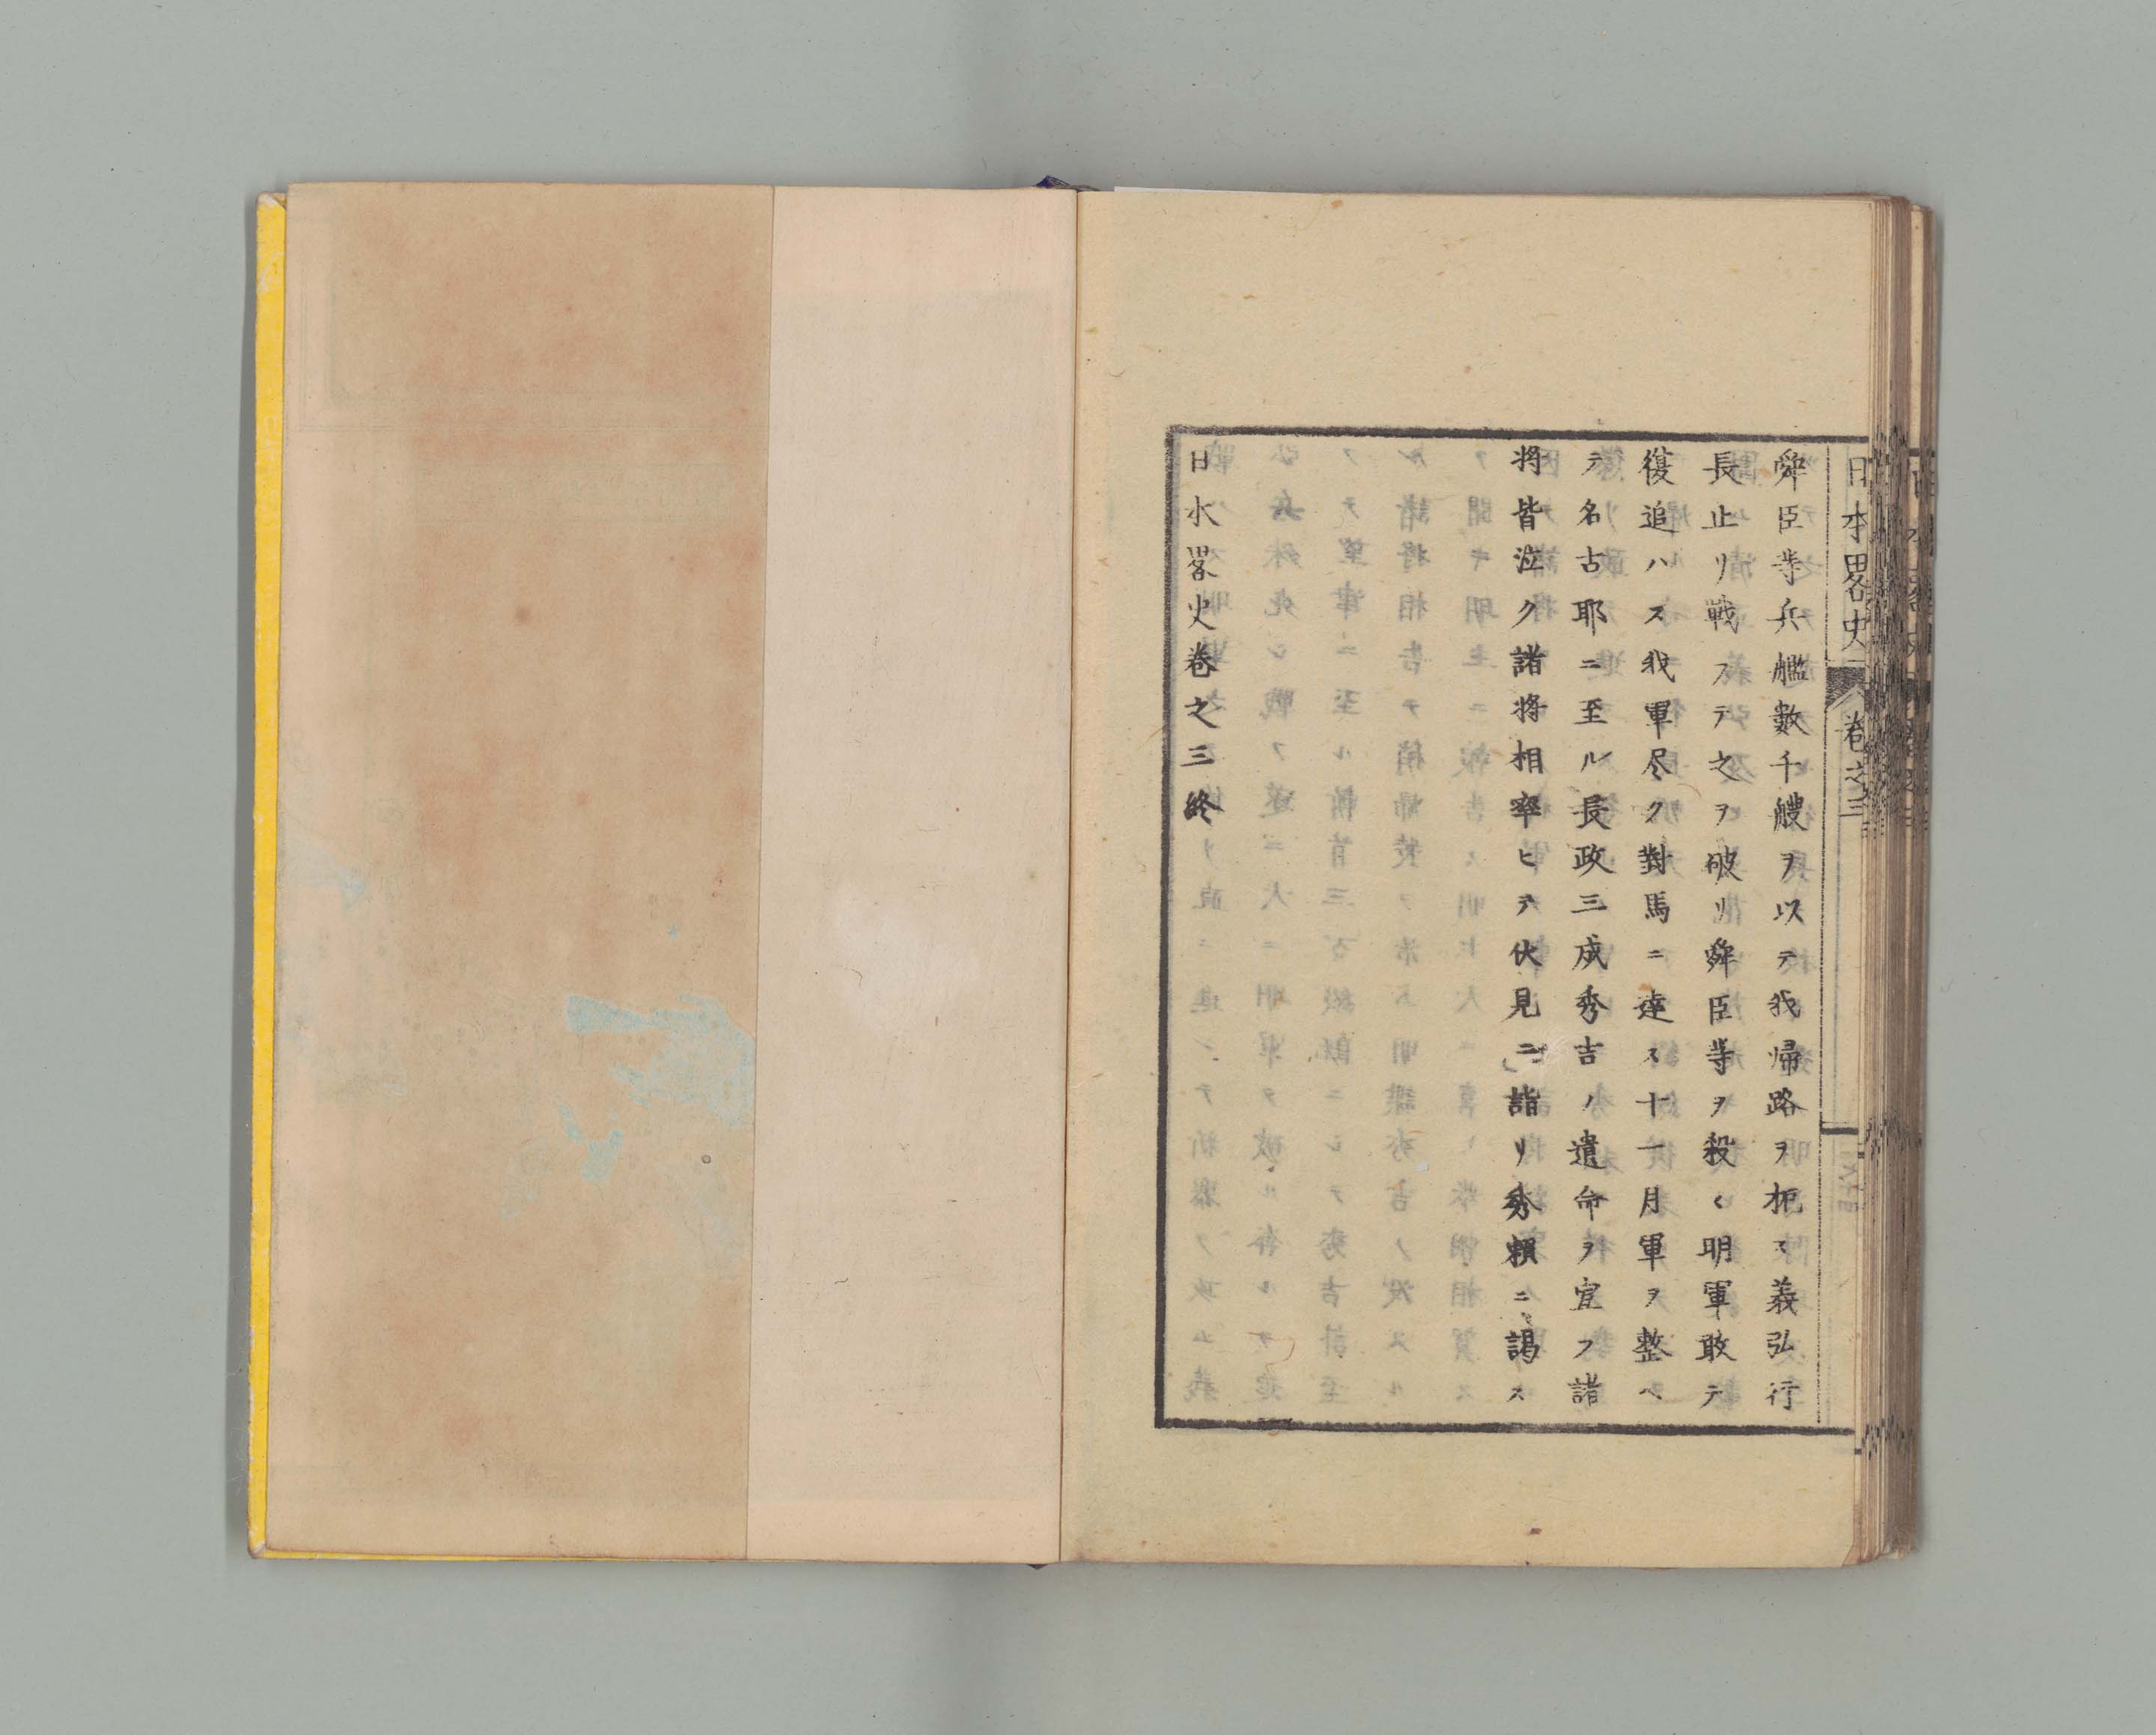 日本畧史 卷之三
舜臣等兵艦數千艘ヲ以テ我帰路ヲ扼ス義弘行
長止リ戰フテ之ヲ破リ舜臣等ヲ殺ス明軍敢テ
復追ハス我軍尽ク對馬ニ達ス十一月軍ヲ整ヘ
テ名古耶ニ至ル長政三成秀吉ノ遺命ヲ宣フ諸
将皆泣ク諸将相率ヒテ伏見ニ詣リ秀頼ニ謁ス
日本畧史卷之三終